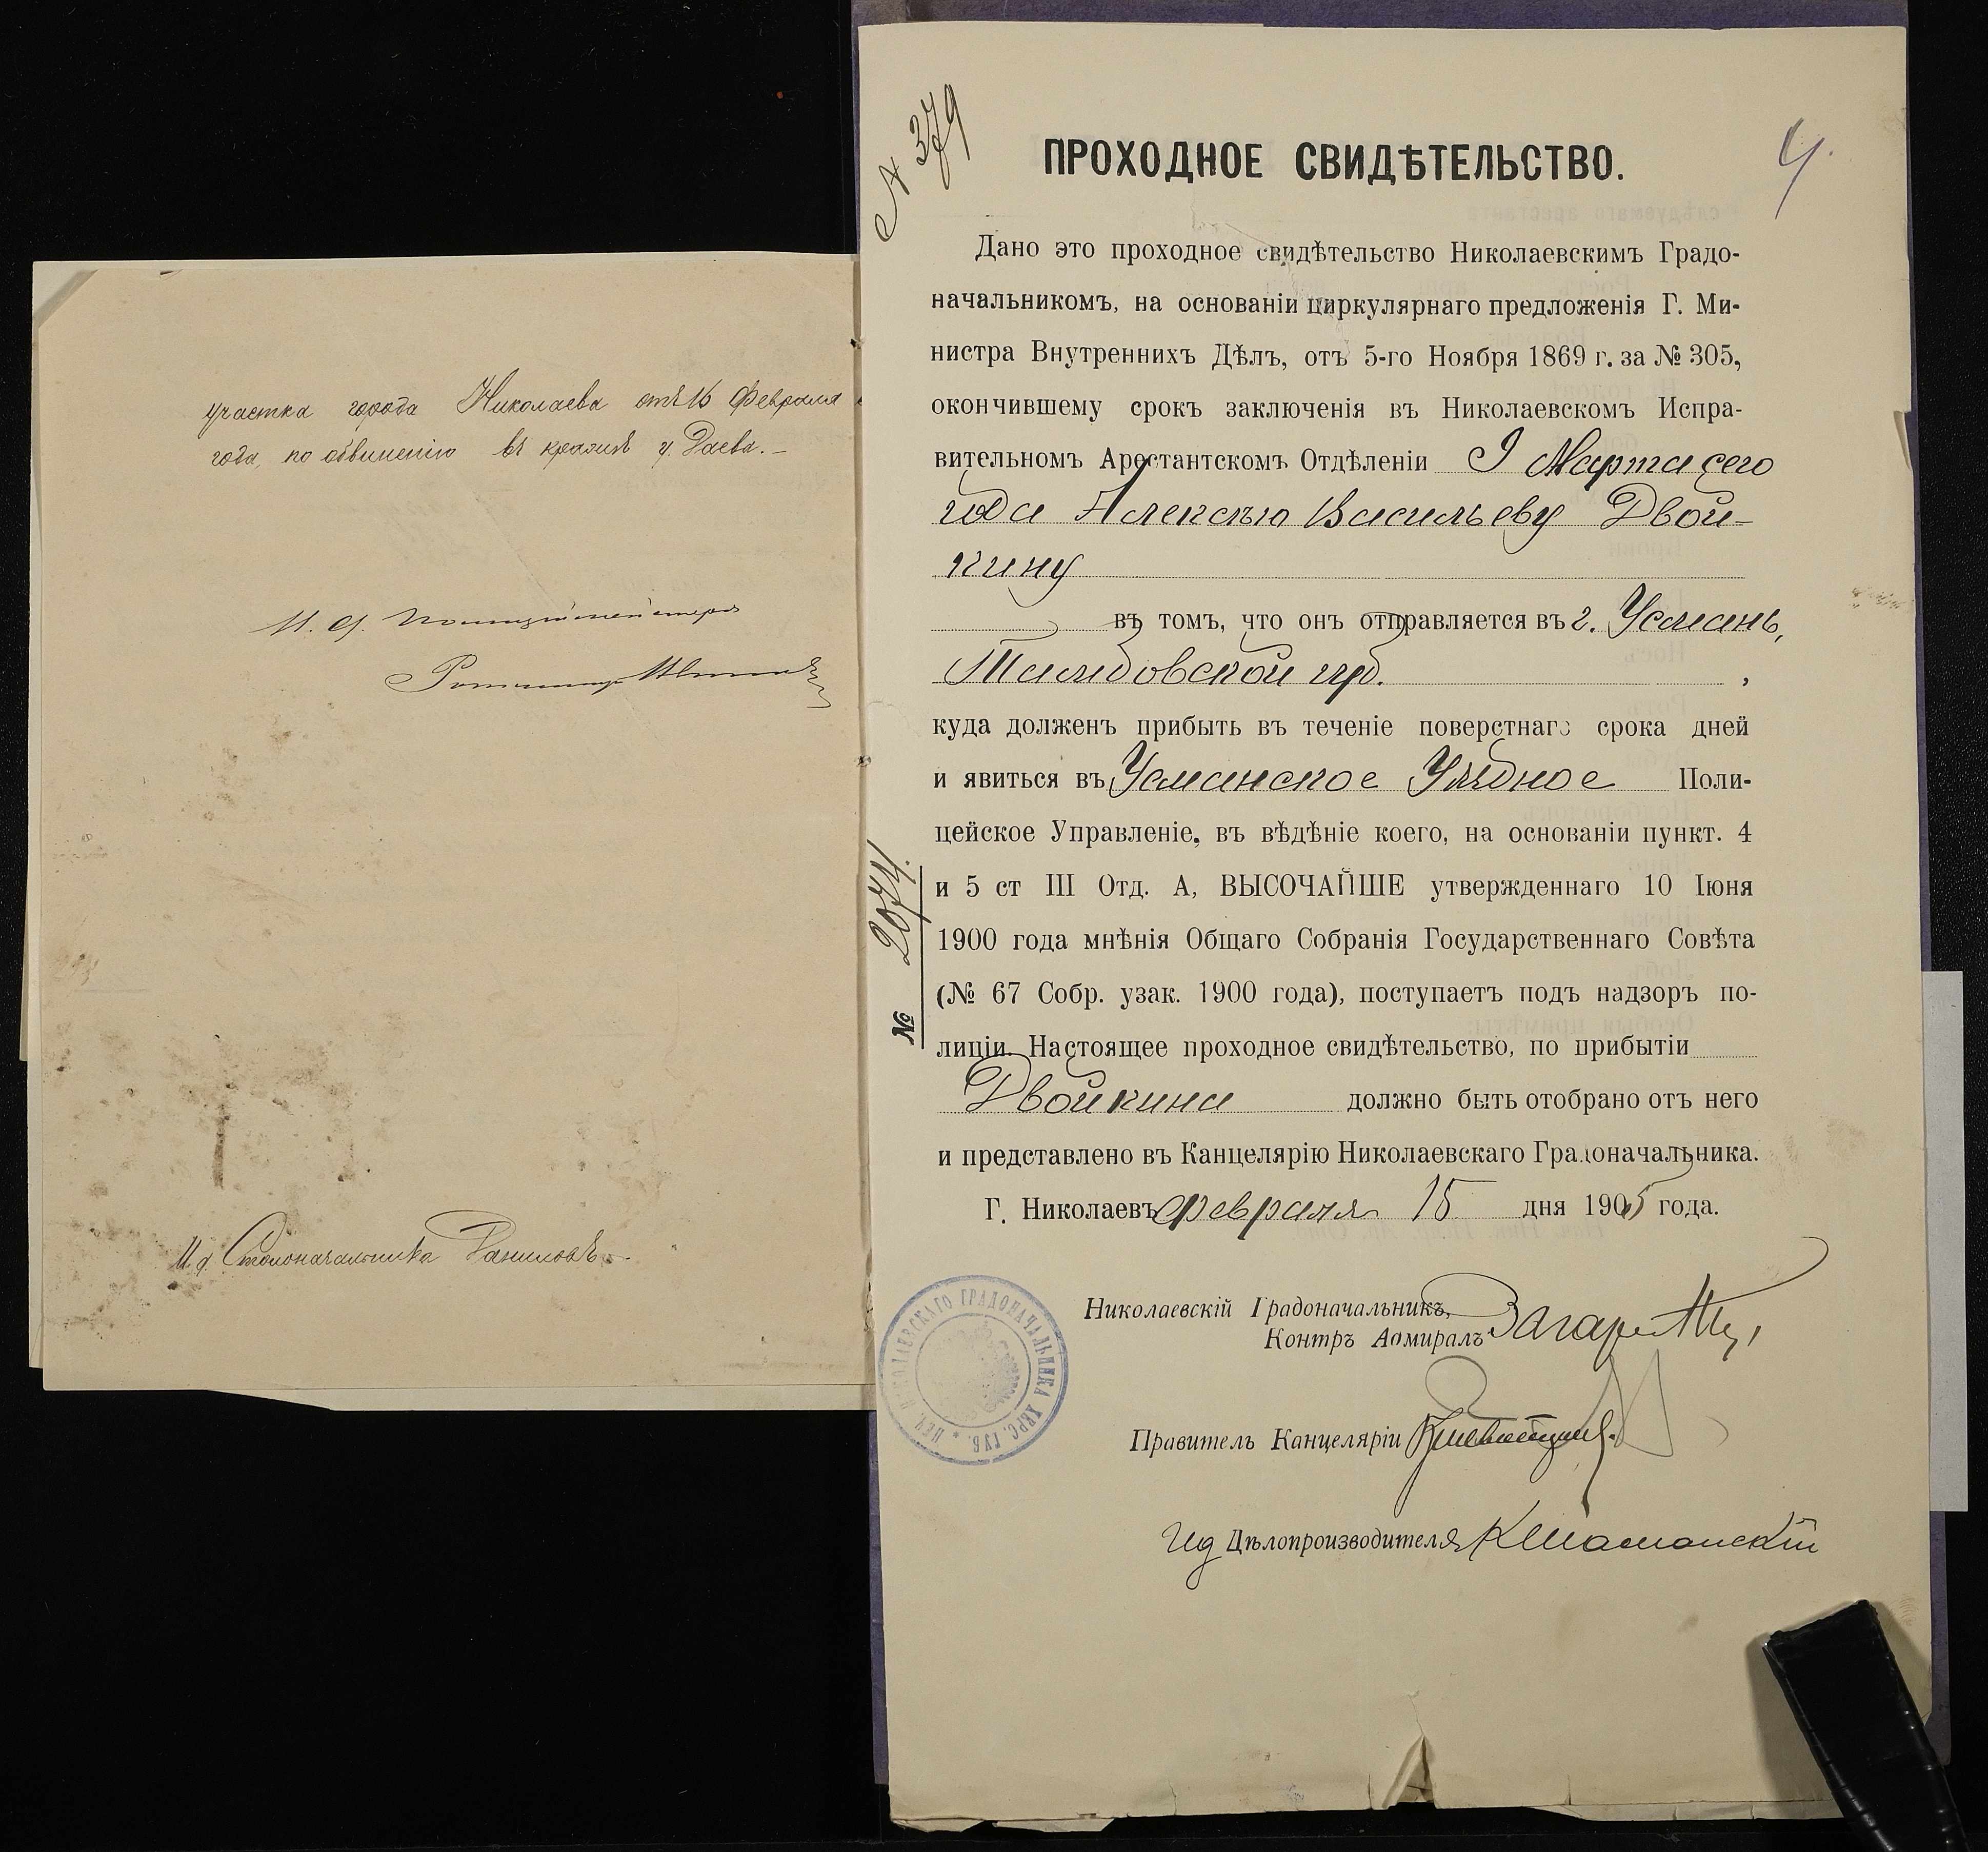 участка города Николаева отъ 16 Февраля
года, по обвиненію въ кражѣ у Раева.—
И. д. Полиціймейстера
Ротмистръ
И д. Столоначальника Даниловъ
№ 379
4.
ПРОХОДНОЕ СВИДѢТЕЛЬСТВО.
Дано это проходное свидѣтельство Николаевскимъ Градо-
начальникомъ, на основаніи циркулярнаго предложенія Г. Ми-
нистра Внутреннихъ Дѣлъ, отъ 5-го Ноября 1869 г. за № 305,
окончившему срокъ заключенія въ Николаевскомъ Испра-
вительномъ Арестантскомъ Отдѣленіи 9 Марта сего
года Алексѣю Васильеву Двой-
кину
въ томъ, что онъ отправляется въ г. Усмань,
Тамбовской губ. ,
куда долженъ прибыть въ теченіе поверстнаго срока дней
и явиться въ Усманское Уѣздное Поли-
цейское Управленіе, въ вѣдѣніе коего, на основаніи пункт. 4
и 5 ст III Отд. А, ВЫСОЧАЙШЕ утвержденнаго 10 Іюня
1900 года мнѣнія Общаго Собранія Государственнаго Совѣта
(№ 67 Собр. узак. 1900 года), поступаетъ подъ надзоръ по-
лиціи. Настоящее проходное свидѣтельство, по прибытіи
Двойкина должно быть отобрано отъ него
и представлено въ Канцелярію Николаевскаго Градоначальника.
Г. Николаевъ Февраля 15 дня 1905 года.
№ 2074.
Николаевскій Градоначальникъ,
Контръ Адмиралъ
ПЕЧ. НИКОЛАЕВСКАГО ГРАДОНАЧАЛЬНИКА ХЕРС. ГУБ.
Правитель Канцеляріи
Ид Дѣлопроизводителя К Шаманскій